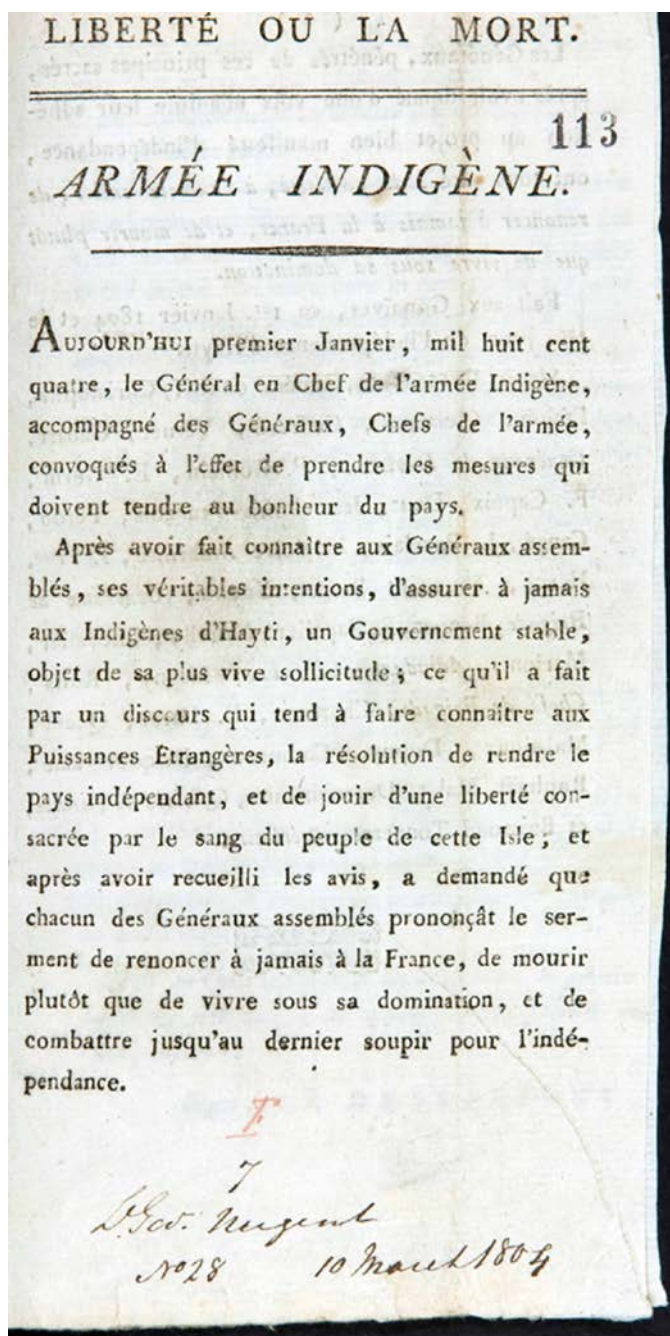 LIBERTÉ OU LA MORT.
113
ARMÉE INDIGÈNE.
AUJOURD'HUI premier Janvier, mil huit cent
quatre, le Général en Chef de l'armée Indigène,
accompagné des Généraux, Chefs de l'armée,
convoqués à l'effet de prendre les mesures qui
doivent tendre au bonheur du pays.
Après avoir fait connaître aux Généraux assem-
blés, ses véritables intentions, d'assurer à jamais
aux Indigènes d'Hayti, un Gouvernement stable,
objet de sa plus vive sollicitude; ce qu'il a fait
par un discours qui tend à faire connaître aux
Puissances Etrangères, la résolution de rendre le
pays indépendant, et de jouir d'une liberté con-
sacrée par le sang du peuple de cette Isle; et
après avoir recueilli les avis, a demandé que
chacun des Généraux assemblés prononçât le ser-
ment de renoncer à jamais à la France, de mourir
plutôt que de vivre sous sa domination, et de
combattre jusqu'au dernier soupir pour l'indé-
pendance.
F
7
Nugent
No 28 10 March 1804